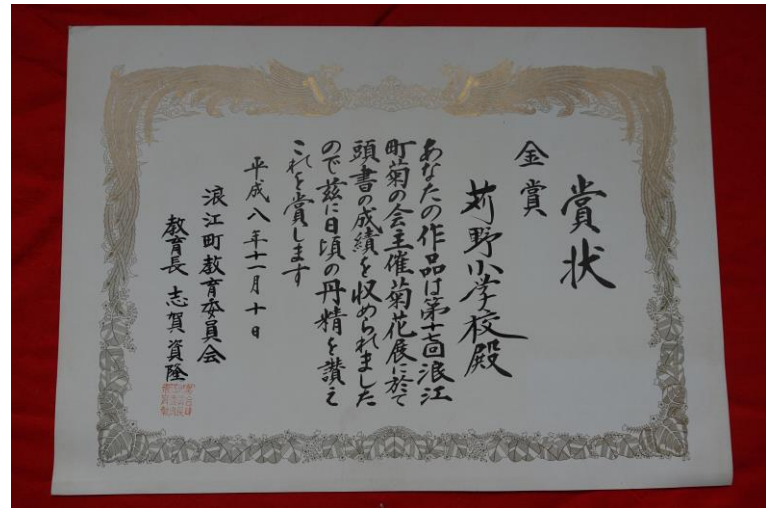 賞状
金賞
苅野小学校殿
あなたの作品は第十七回浪江
町菊の会主催菊花展に於て
頭書の成績を収められました
ので茲に日頃の丹精を讃え
これを賞します
平成八年十一月十日
浪江町教育委員会
教育長 志賀資隆